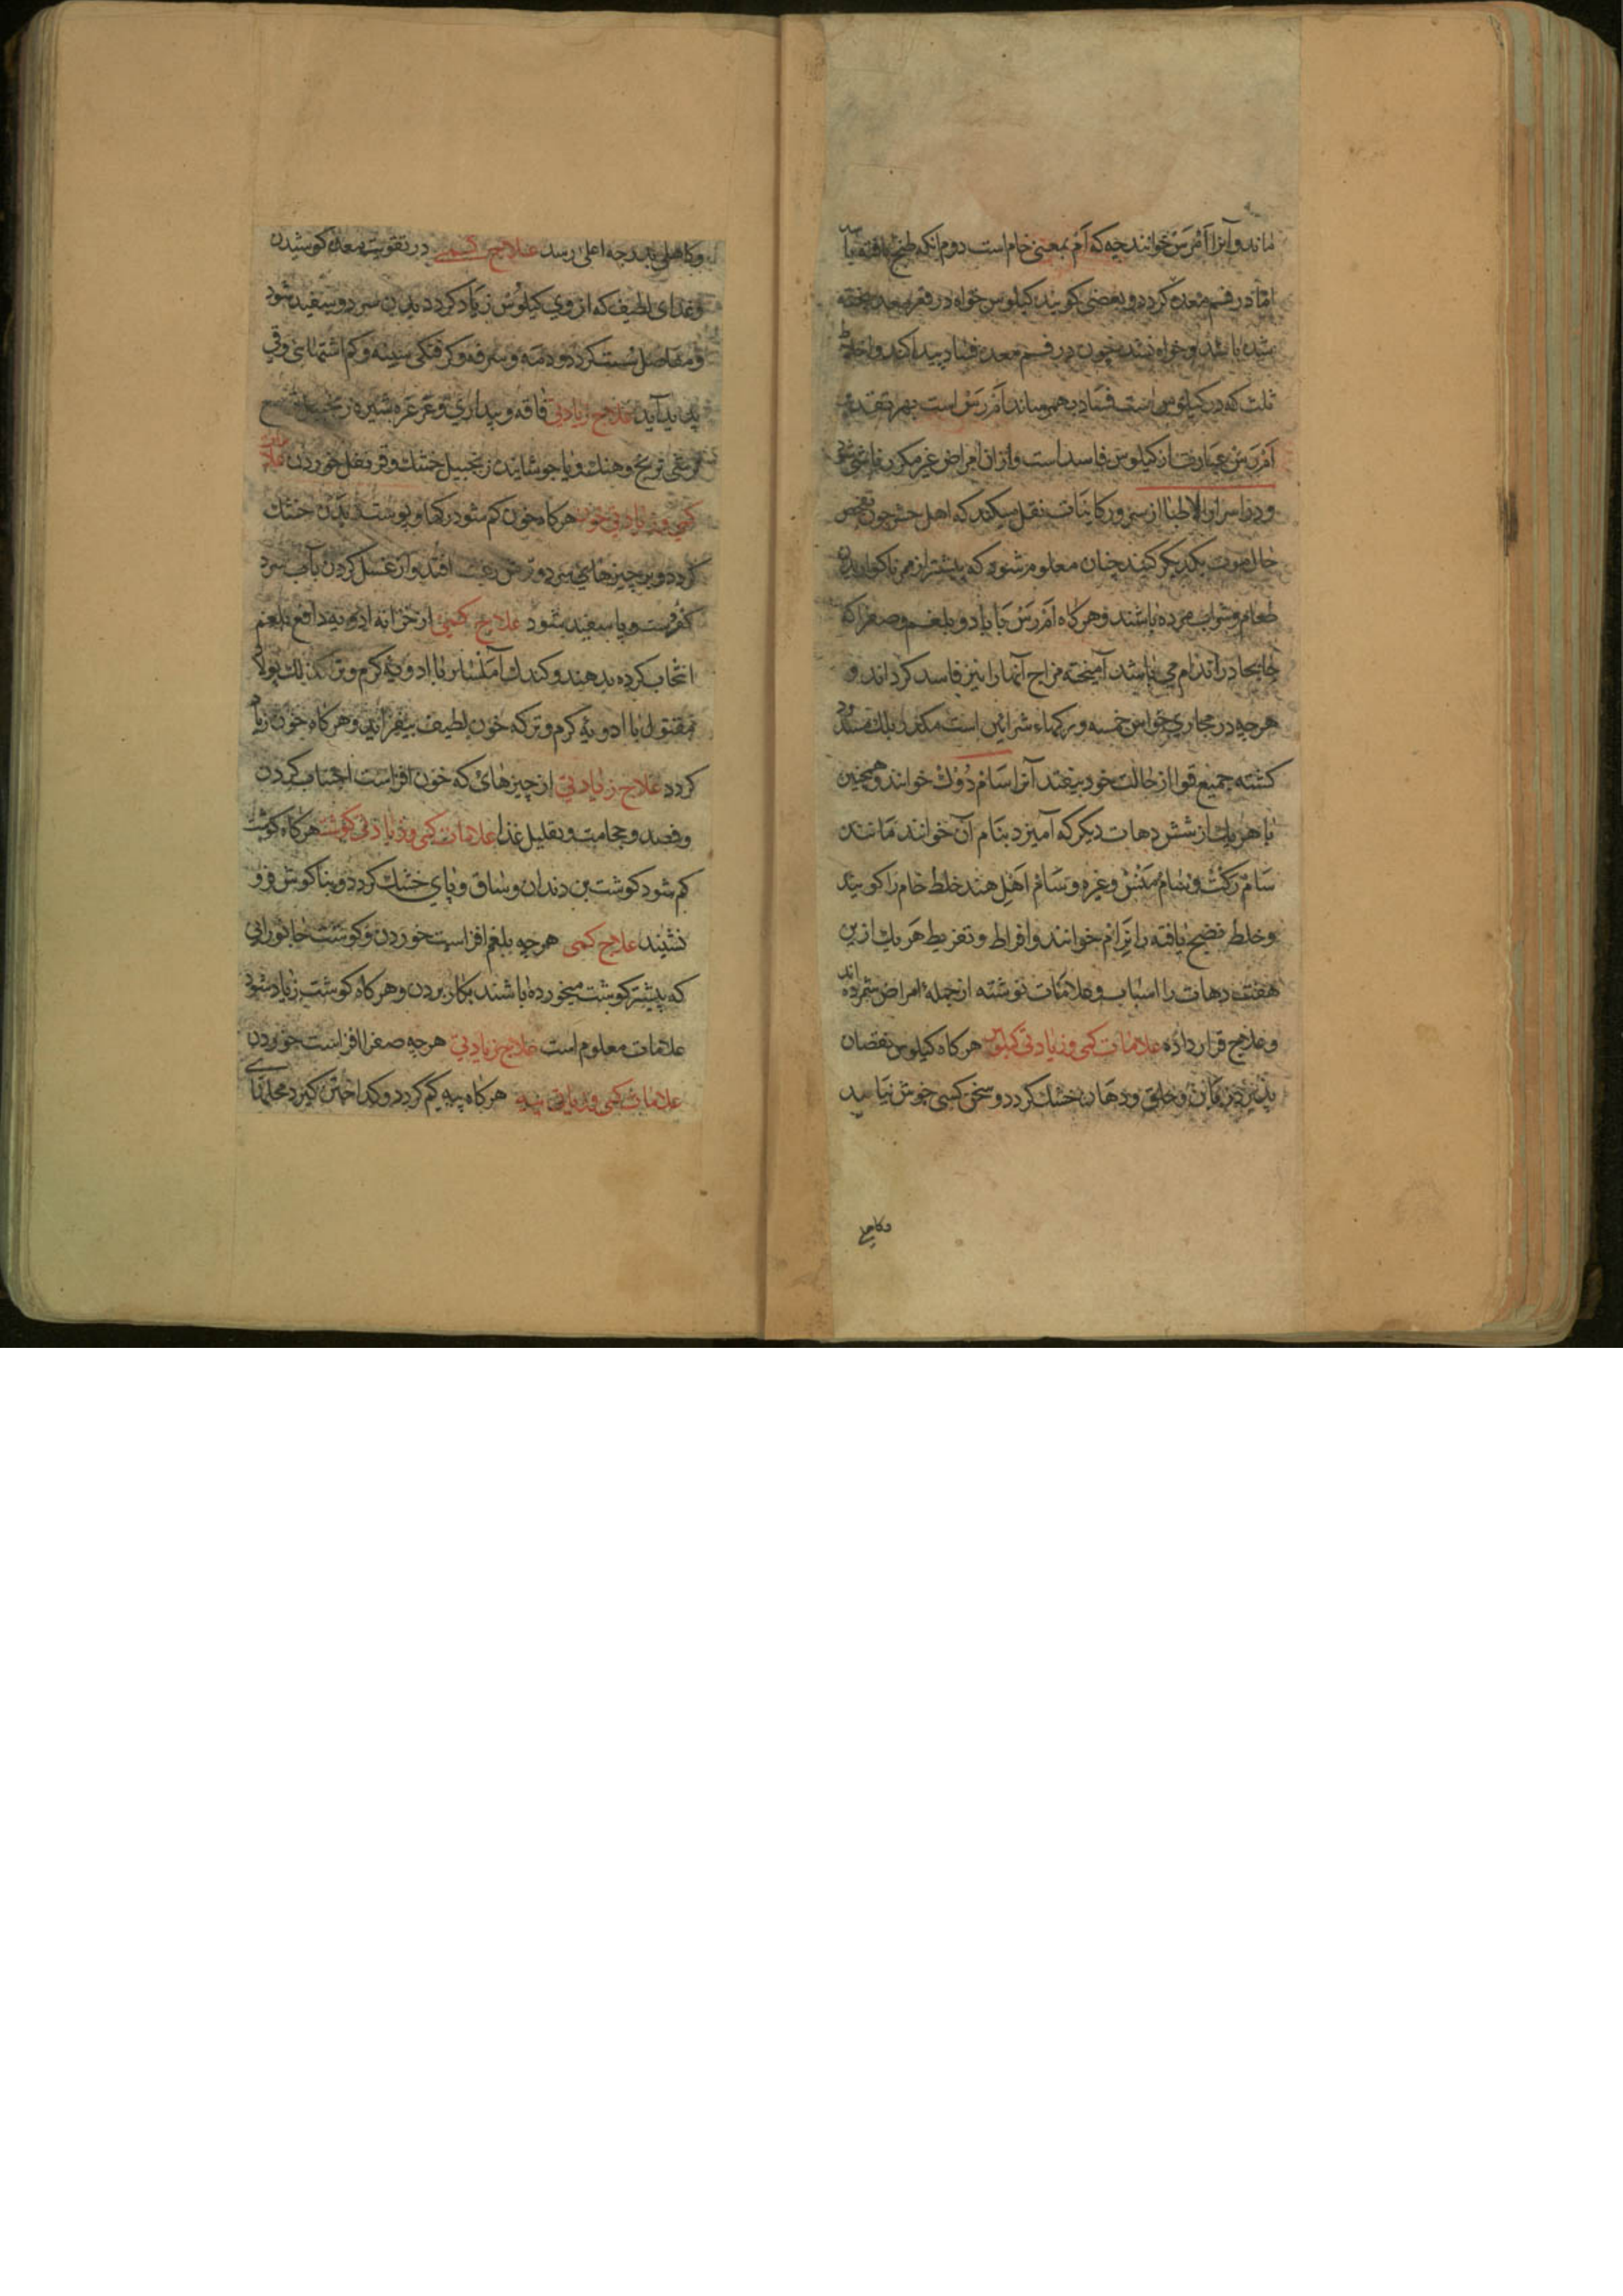 ماند و آنرا آمرس خوانند چه که آم بمعنی خام است دوم انکه طبخ یافته باشد
اما در فم معده گردد و بعضی گویند کیلوس خواه در قعر معده پخته
شده باشد و خواه نشده چون در فم معده فساد پیدا کند و اخلاط
ثلث که در کیلوس است فساد بهم رساند آمرس است بهر تقدیر
آمرس عبارت از کیلوس فاسد است و ازان امراض غیر مکرر ناشی شود
و در اسرار الاطبا از سرور کاینات نقل میکند که اهل حشر چون تفحص
حال موت یکدیگر کنند چنان معلوم شود که بیشتر از مر ناگوارید
طعام و شراب مرده باشند و هرگاه آمرس جا یا دو بلغم و صفرا که
جابجا در اندام می باشد آمیخته مزاج آنها را نیز فاسد گرداند و
هرچه در مجاری حواس خمسه و رگهاء شرائین است مکدر بلک مسدود
گشته جمیع قوا از حالت خود بیفتد آنرا سام دوک خوانند و همچنین
با هر یک از شش دهات دیگر که آمیزد بنام آن خوانند مانند
سام رکت و سام منش و غیره و سام اهل هند خلط خام را گویند
و خلط نضج یافته را نرام خوانند و افراط و تفریط هر یک ازین
هفت دهات را اسباب و علامات نوشته از جمله امراض شمرده اند
و علاج قرار داده علامات کمی و زیادتی کیلوس هرگاه کیلوس نقصان
پذیرد زبان و حلق و دهان خشک گردد و سخن کسی خوش نیاید
وکاهلی
وکاهلی بدرجه اعلی رسد علاج کمی در تقویت معده کوشیدن
و غذای لطیف که از وی کیلوس زیاد گردد بدن سرد و سفید شود
و مفاصل سست گردد و دمه و سرفه و گرفتگی سینه و کم اشتهائی و قی
پدید آید علاج زیادتی فاقه و بیداری و غرغره بشیره زنجبیل
عرقی ترنج و هنک و یا جوشانده زنجبیل خشک و قرنفل خوردن علامات
کمی و زیادتی خون هرگاه خون کم شود رگها و پوست بدن خشک
گردد و بر چیزهای سرد و ترش رغبت افتد و از غسل کردن بآب سرد
کف دست و پا سفید شود علاج کمی از خزانه ادویه دافع بلغم
انتخاب کرده بدهند و گندک آملسار با ادویه گرم و تر و کذلک پولاد
مقتول با ادویه گرم و تر که خون لطیف بیفزاید و هرگاه خون زیاد
گردد علاج زیادتی از چیزهای که خون افزاست اجتناب کردن
و فصد و حجامت و تقلیل غذا علامات کمی و زیادتی گوشت هرگاه گوشت
کم شود گوشت بن دندان و ساق و پای خشک گردد و بناگوش فرو
نشیند علاج کمی هرچه بلغم افزاست خوردن و گوشت جانورانی
که بیشتر گوشت میخورده باشند بکار بردن و هرگاه گوشت زیاد شود
علامات معلوم است علاج زیادتی هرچه صفرا افزاست خوردن
علامات کمی و زیادتی پیه هرگاه پیه کم گردد و گداختن گیرد محلهای